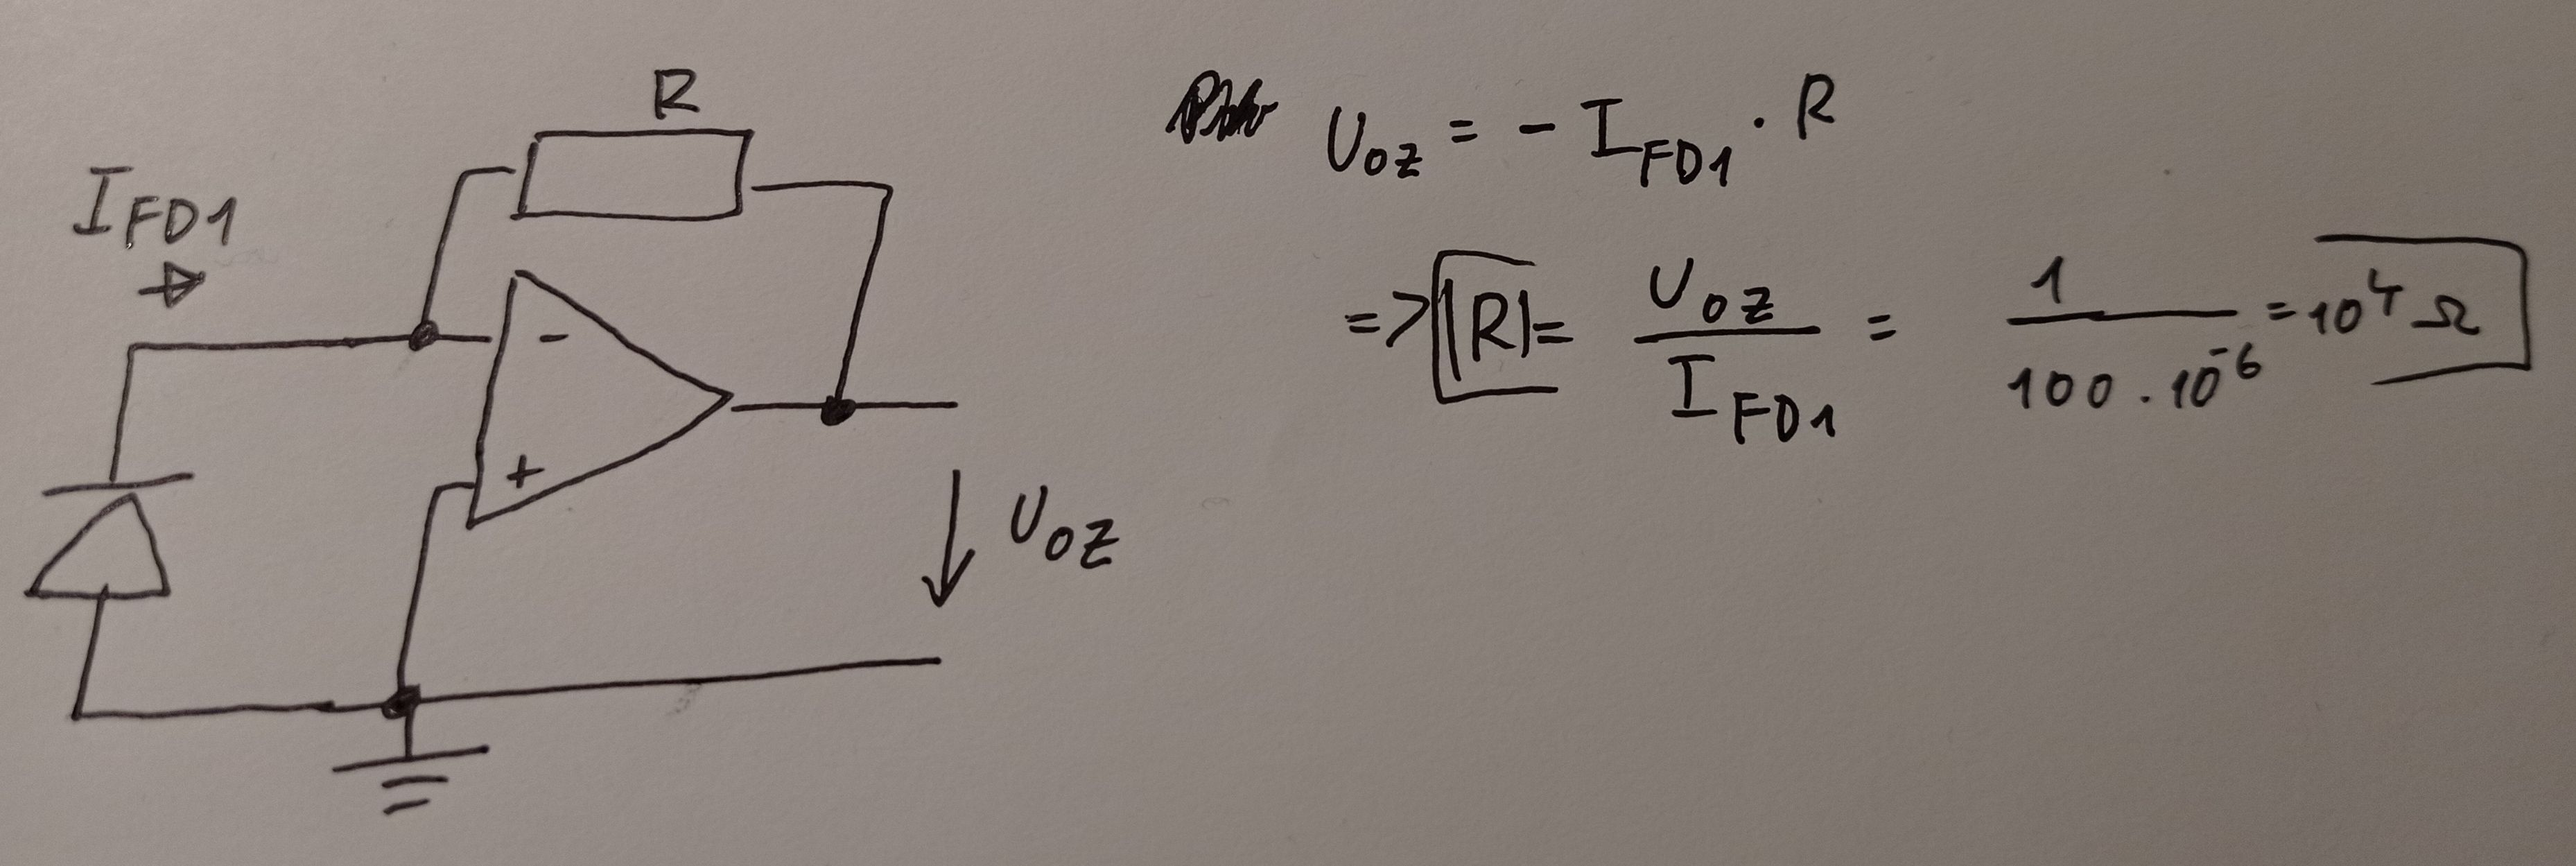 R
I_FD1
-
+
U_OZ
U_OZ = - I_FD1 . R
=> |R| = U_OZ / I_FD1 = 1 / 100 . 10^-6 = 10^4 Ω